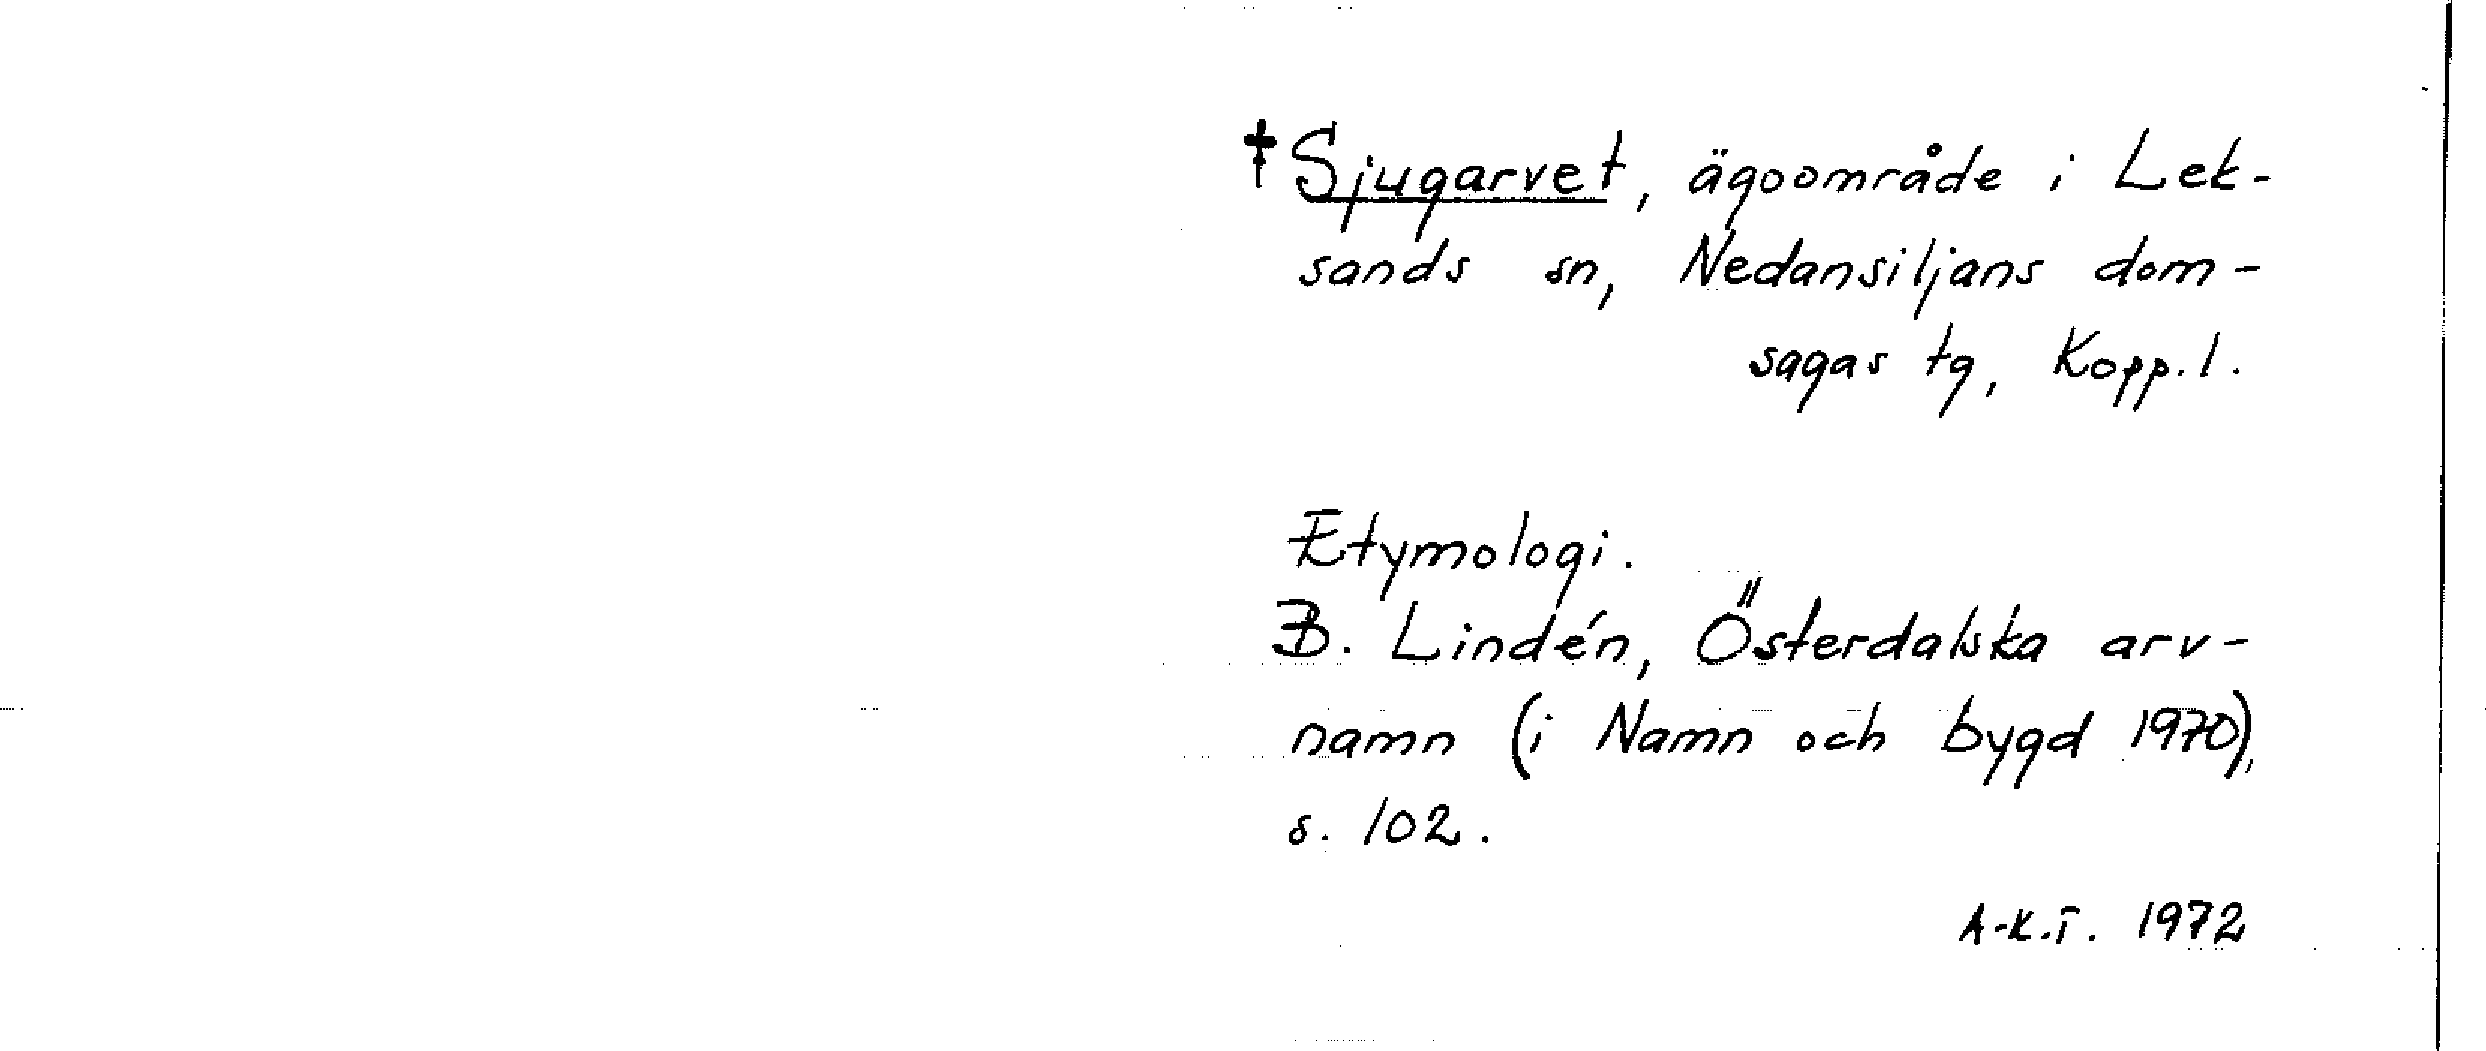 †Sjugarvet, ägoområde i Lek-
sands sn, Nedansiljans dom-
sagas tg, Kopp.l.
Etymologi.
B. Lindén, Österdalska arv-
namn (i Namn och bygd 1970),
s. 102.
A-K.T. 1972